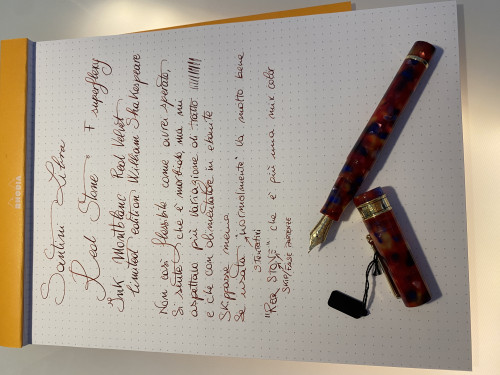 Santini Libra
Red Stone F superflexy
Ink Montblanc Red Velvet
limited edition William Shakespeare
Non così flessibile come avrei sperato,
Si sente che è morbido, ma mi
aspettavo più variazione di tratto !!!!!!!!!
e che con alimentatore in ebanite
skippasse meno
Se usata "normalmente" va molto bene
3 tentativi
"Red STONE" che è più una mix color
SKIP/FASE PARTENZE
RHODIA